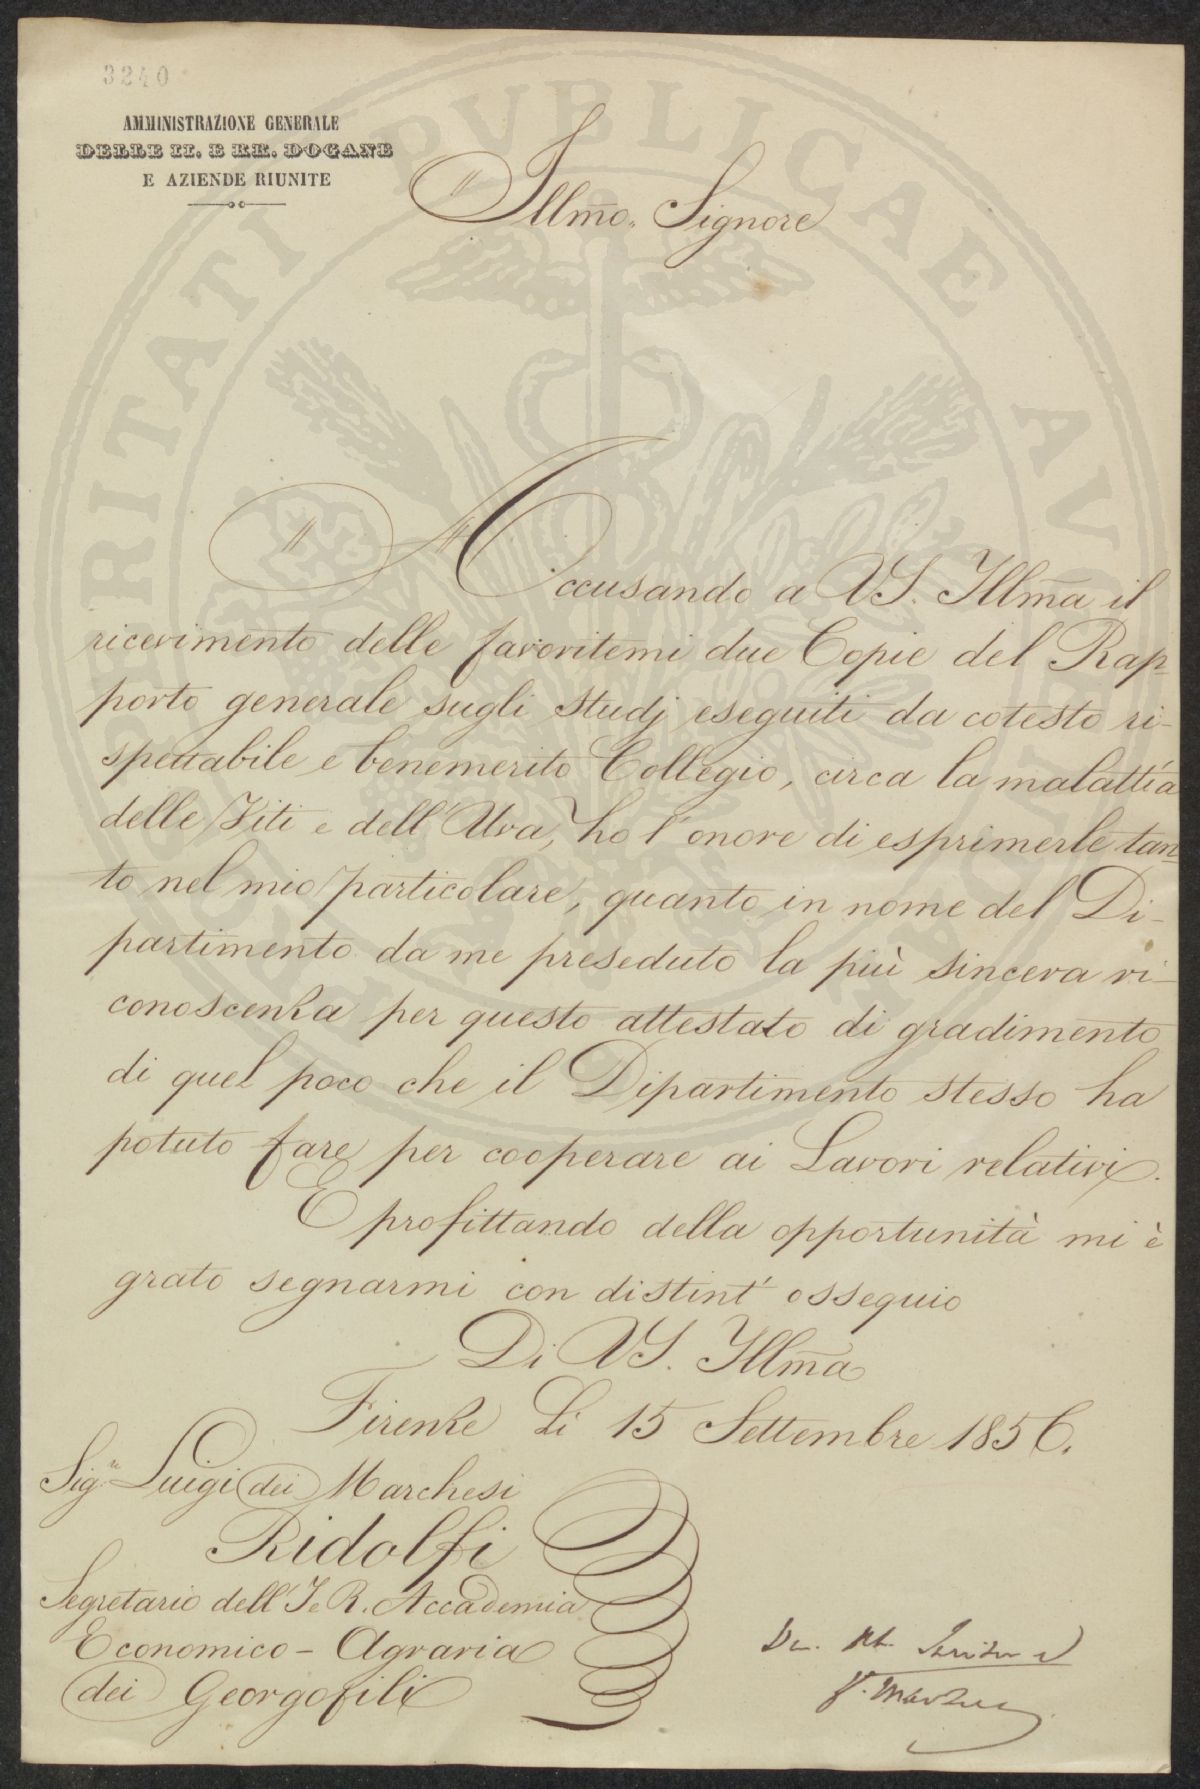 3240
AMMINISTRAZIONE GENERALE
DELLE II. E RR. DOGANE
E AZIENDE RIUNITE
Illm̃o. Signore
Accusando a VS. Illm̃a il
ricevimento delle favoritemi due Copie del Rap-
porto generale sugli studj eseguiti da cotesto ri-
spettabile e benemerito Collegio, circa la malattía
delle Viti e dell'Uva, ho l'onore di esprimerle tan-
to nel mio particolare, quanto in nome del Di-
partimento da me preseduto la più sincera ri-
conoscenza per questo attestato di gradimento
di quel poco che il Dipartimento stesso ha
potuto fare per cooperare ai Lavori relativi.
E profittando della opportunità mi è
grato segnarmi con distint' ossequio
Di VS. Illm̃a
Firenze Li 15 Settembre 1856.
Sigr. Luigi dei Marchesi
Ridolfi
Segretario dell'I. e R. Accademia
Economico - Agraria
dei Georgofili